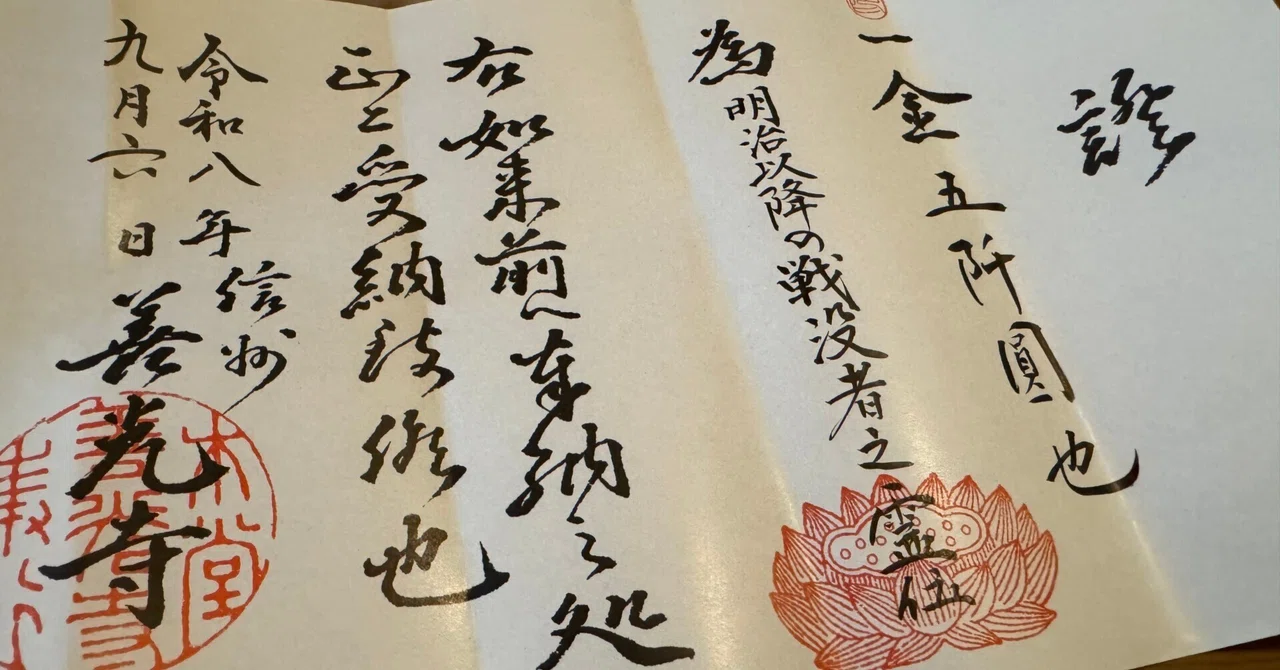 證
一金五阡圓也
為明治以降の戦没者之霊位
右如来前へ奉納之処
正ニ受納致候也
令和八年信州
九月六日善光寺